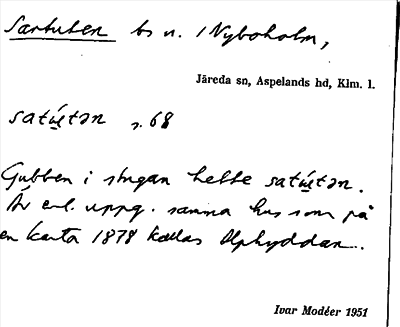 Sartuten bs n. i Nyboholm,
Järeda sn, Aspelands hd, Klm. l.
satú̱tən s. 68
Gubben i stugan hette satú̱tən.
Är enl. uppg. samma hus som på
en karta 1878 kallas Alphyddan.
Ivar Modéer 1951